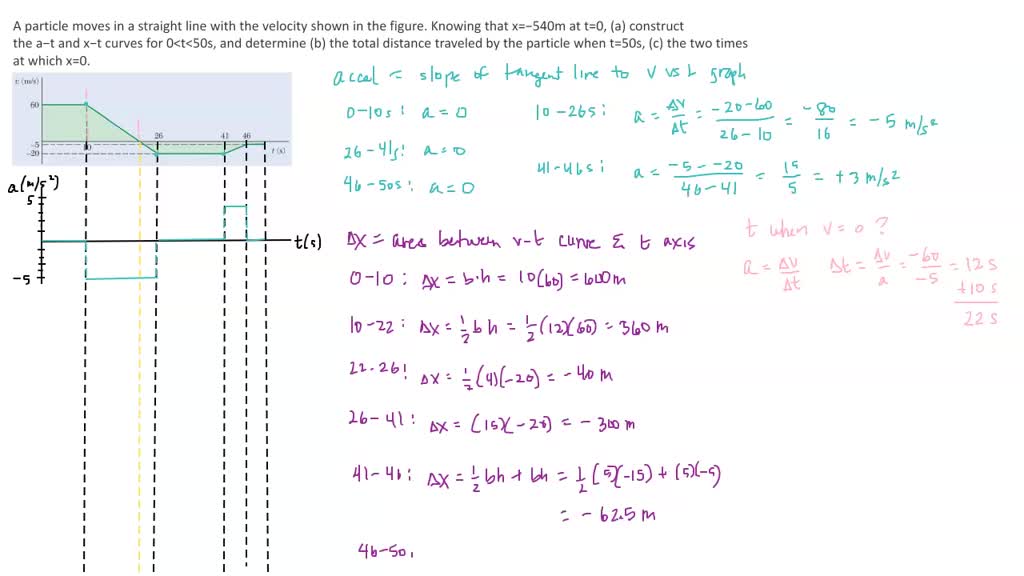 A particle moves in a straight line with the velocity shown in the figure. Knowing that x=−540m at t=0, (a) construct
the a−t and x−t curves for 0<t<50s, and determine (b) the total distance traveled by the particle when t=50s, (c) the two times
at which x=0.
v (m/s)
60
-5
-20
10
26
41
46
t (s)
a(m/s²)
5
-5
t(s)
accel = slope of tangent line to v vs t graph
0-10s: a = 0
10-26s: a = Δv/Δt = -20-60/26-10 = -80/16 = -5 m/s²
26-41s: a = 0
41-46s: a = -5--20/46-41 = 15/5 = +3 m/s²
46-50s: a = 0
Δx = area between v-t curve & t axis
0-10: Δx = b·h = 10(60) = 600m
10-22: Δx = 1/2 bh = 1/2 (12)(60) = 360 m
22-26: Δx = 1/2 (4)(-20) = -40 m
26-41: Δx = (15)(-20) = -300 m
41-46: Δx = 1/2 bh + bh = 1/2 (5)(-15) + (5)(-5)
= -62.5 m
46-50:
t when v=0?
a = Δv/Δt Δt = Δv/a = -60/-5 = 12 s
+10 s
22 s